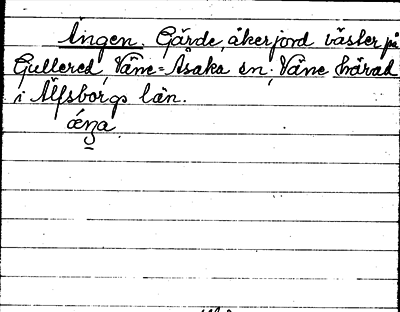 Ängen. Gärde, åkerjord väster på
Gullered, Väne-Åsaka sn. Väne härad
i Älfsborgs län.